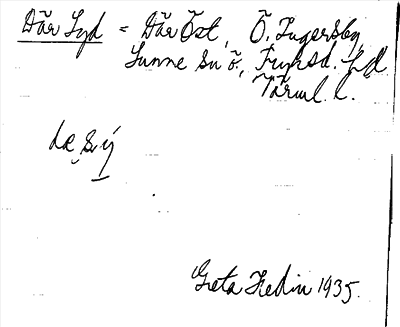 Där Syd = Där Öst, Ö. Ingersby,
Sunne sn ö., Fryksd. hd
Värml. l.
dæ̣ s̯ý
Greta Hedin 1935.